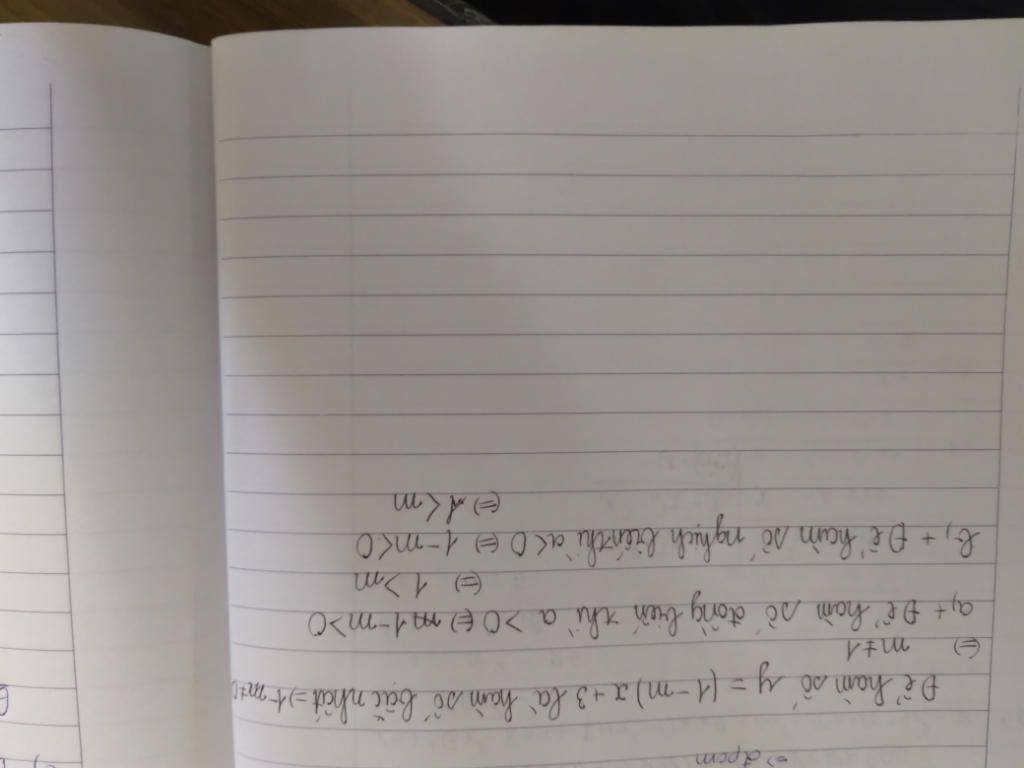 => đpcm
Để hàm số y = (1-m)x+3 là hàm số bậc nhất => 1-m≠0
<=> m≠1
a, + Để hàm số đồng biến thì a >0 <=> 1-m>0
<=> 1>m
b, + Để hàm số nghịch biến thì a<0 <=> 1-m<0
<=> 1<m